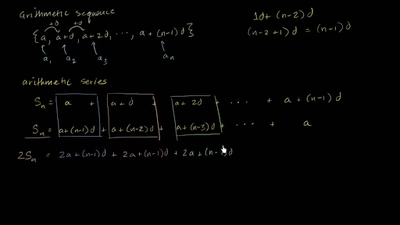 arithmetic sequence
+d +d
{a, a+d, a+2d, ..., a+(n-1)d}
a₁ a₂ a₃ aₙ
1d + (n-2)d
(n-2+1)d = (n-1)d
arithmetic series
Sₙ = a + a+d + a+2d + ... + a+(n-1)d
Sₙ = a+(n-1)d + a+(n-2)d + a+(n-3)d + ... + a
2Sₙ = 2a+(n-1)d + 2a+(n-1)d + 2a+(n-1)d